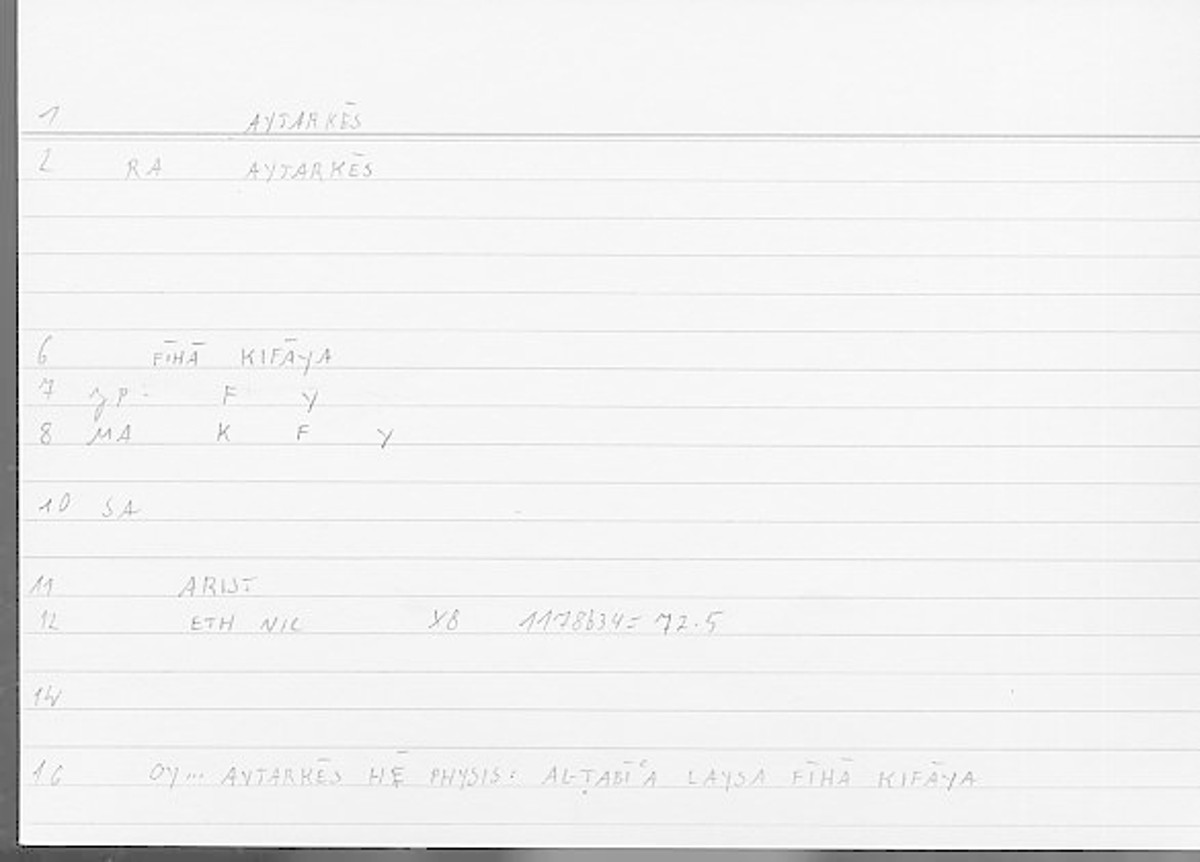 1 AYTARKĒS
2 RA AYTARKĒS
6 FĪHĀ KIFĀYA
7 F Y
8 MA K F Y
10 SA
11 ARIST
12 ETH NIC X8 1178b34= 72.5
14
16 OY... AYTARKĒS HĒ PHYSIS: AL-ṬABĪʿA LAYSA FĪHĀ KIFĀYA